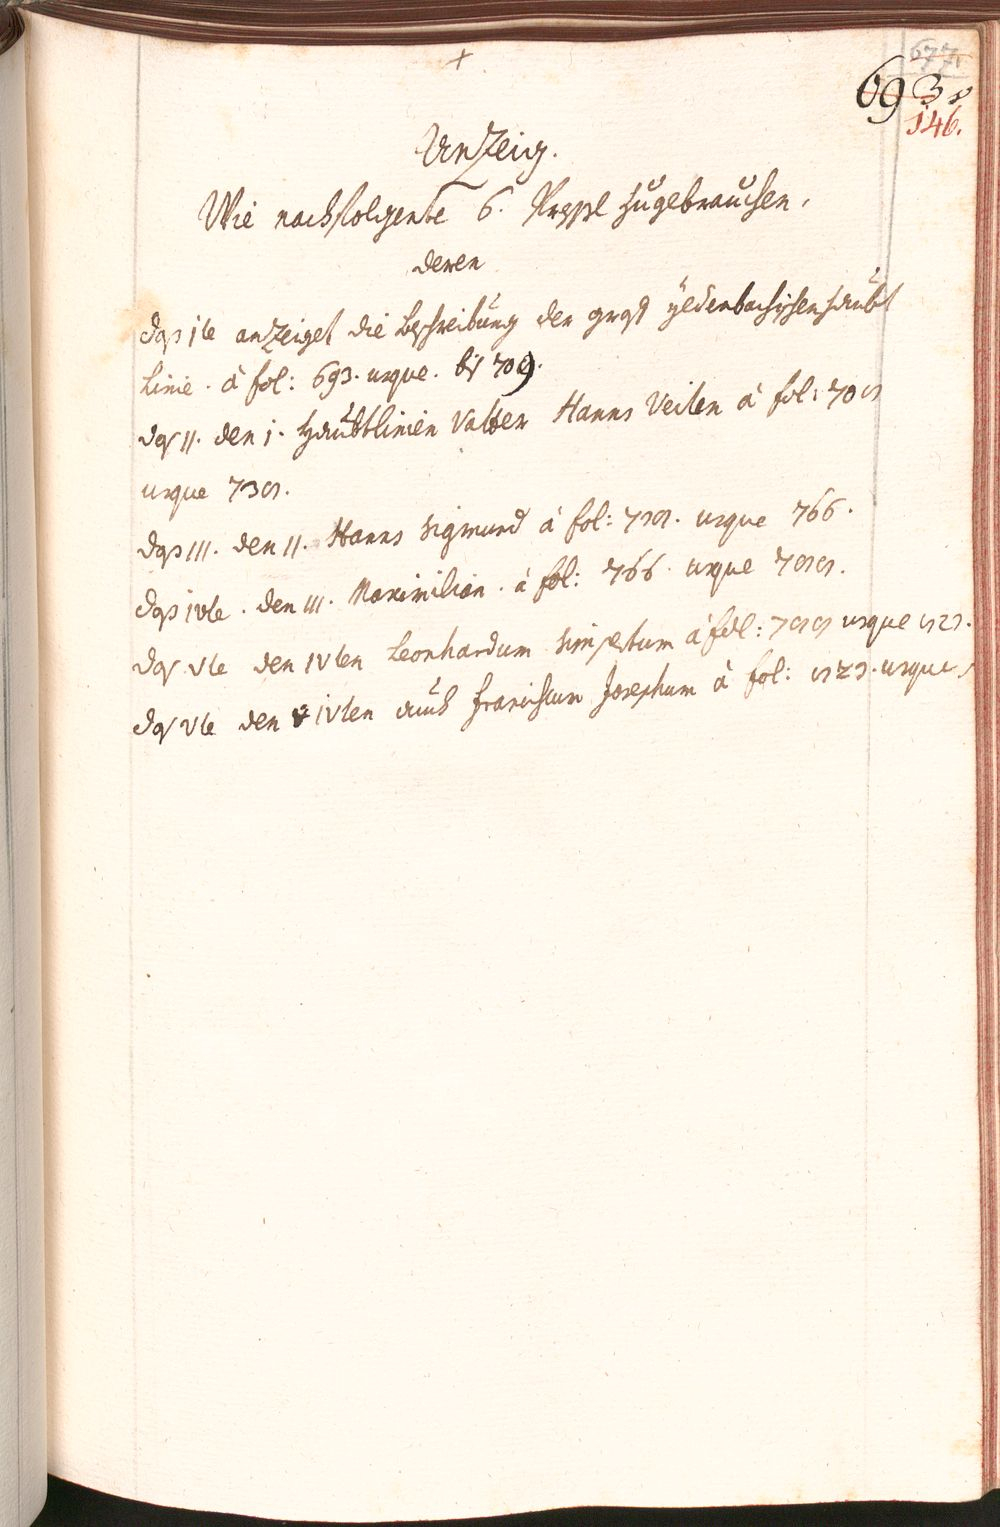 +
677.
693
146.
Anzeig.
Wie nachfolgente 6. zugebrauchen,
deren
das 1te anzeiget die beschreibung der gross haubt
Linie. à fol: 693. usque. bis 709.
das II. den 1. haubtlinien Vatter Hanns Veiten à fol: 709
usque 739.
das III. den II. Hanns Sigmund à fol: usque 766.
das ivte. den III. Maximilian. à fol: 766. usque 799.
das Vte den IVten Leonhardum Simpertum à fol: 799 usque
das VIte den IVten auch Franciscum Josephum à fol: usque